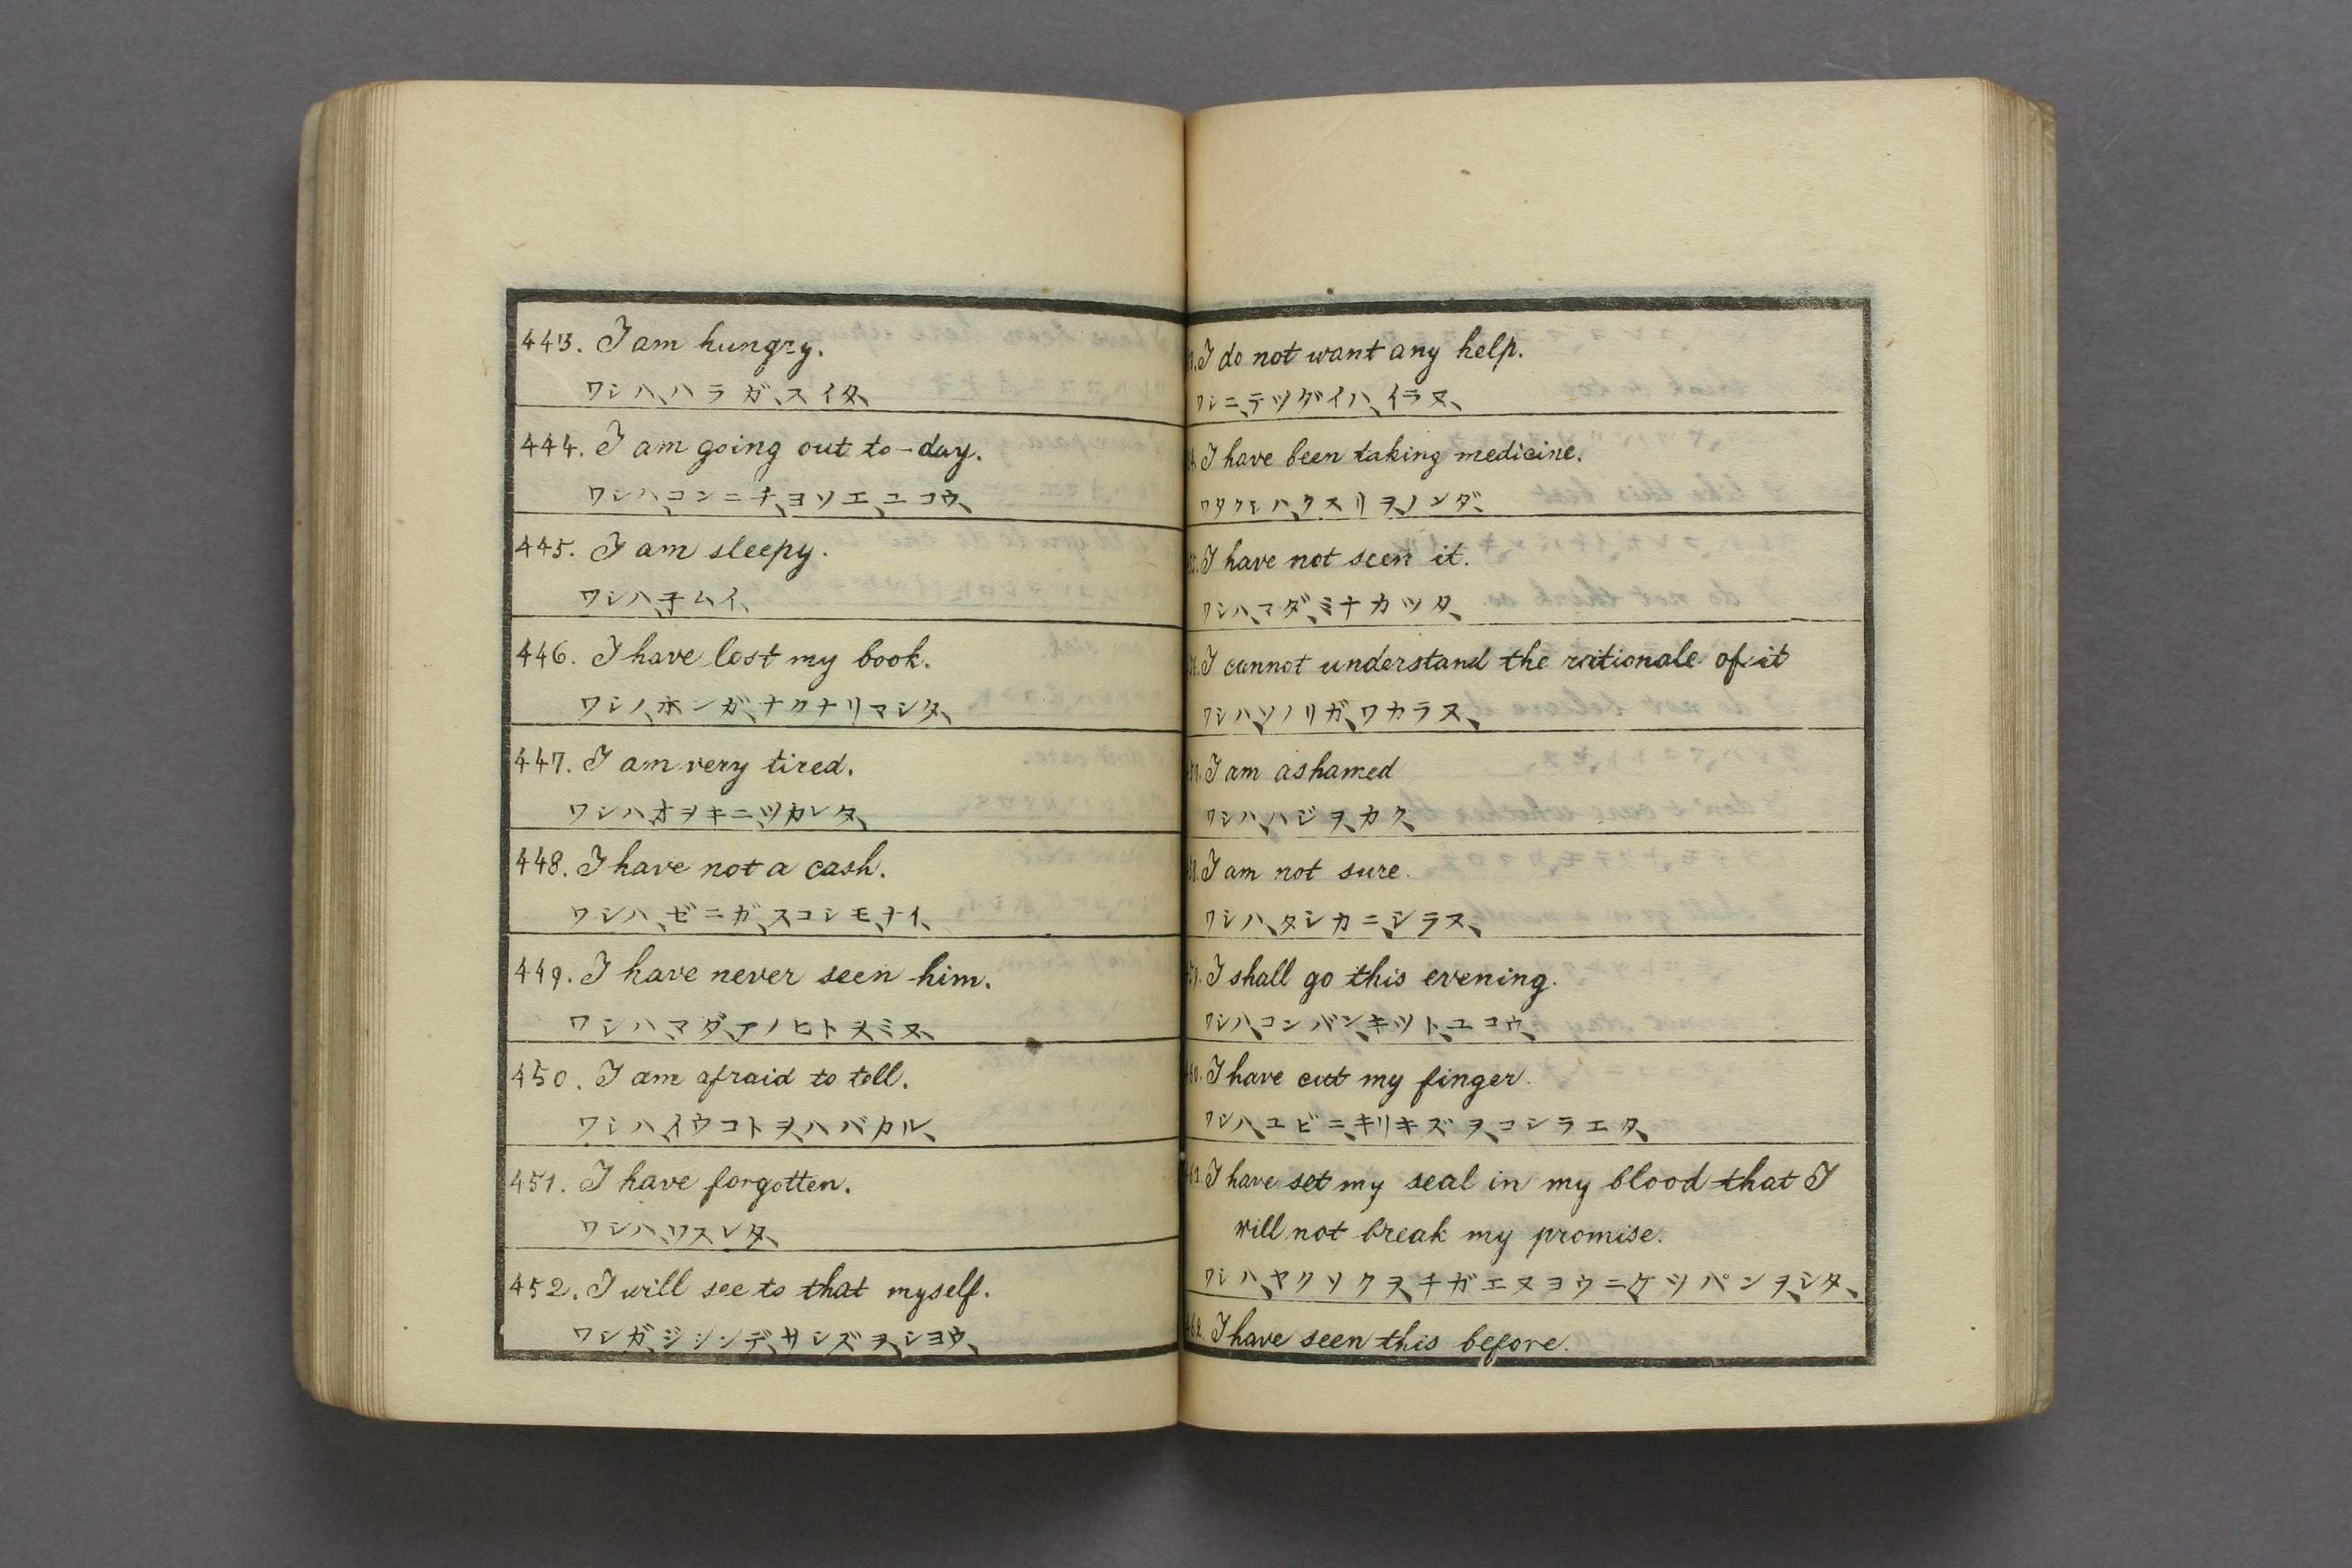 443. I am hungry.
ワシハ、ハラガ、スイタ、
444. I am going out to-day.
ワシハ、コンニチ、ヨソエ、ユコウ、
445. I am sleepy.
ワシハ、子ムイ、
446. I have lost my book.
ワシノ、ホンガ、ナクナリマシタ、
447. I am very tired.
ワシハ、オヲキニ、ツカレタ、
448. I have not a cash.
ワシハ、ゼニガ、スコシモ、ナイ、
449. I have never seen him.
ワシハ、マダ、アノヒトヲ、ミヌ、
450. I am afraid to tell.
ワシハ、イウコトヲ、ハバカル、
451. I have forgotten.
ワシハ、ワスレタ、
452. I will see to that myself.
ワシガ、ジシンデ、サシズヲ、シヨウ、
I do not want any help.
ワシニ、テツダイハ、イラヌ、
I have been taking medicine.
ワタクシハ、クスリヲ、ノンダ、
I have not seen it.
ワシハ、マダ、ミナカツタ、
I cannot understand the rationale of it
ワシハ、ソノリガ、ワカラヌ、
I am ashamed
ワシハ、ハジヲ、カク、
I am not sure.
ワシハ、タシカニ、シラヌ、
I shall go this evening.
ワシハ、コンバン、キツト、ユコウ、
I have cut my finger.
ワシハ、ユビニ、キリキズヲ、コシラエタ、
I have set my seal in my blood that I
will not break my promise.
ワシハ、ヤクソクヲ、チガエヌヨウニ、ケツパンヲ、シタ、
I have seen this before.